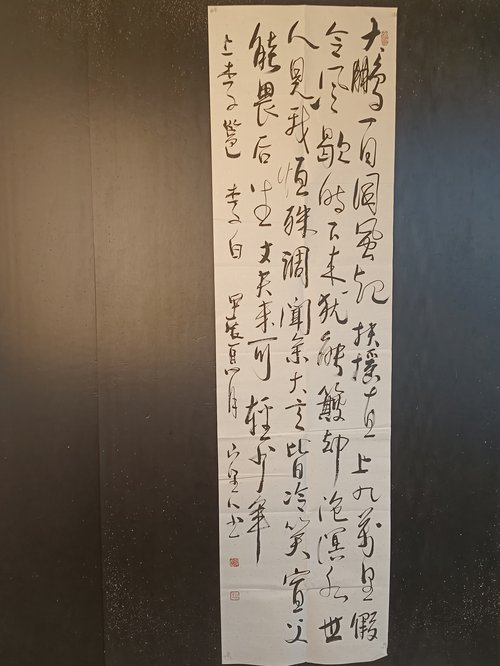 大鵬一日同風起扶摇直上九萬里假
令风歇時下来犹能簸却沧溟水世
人見我恒殊调聞余大言皆冷笑宣父
能畏后生丈夫未可輕少年
上李邕 李白 甲辰夏月